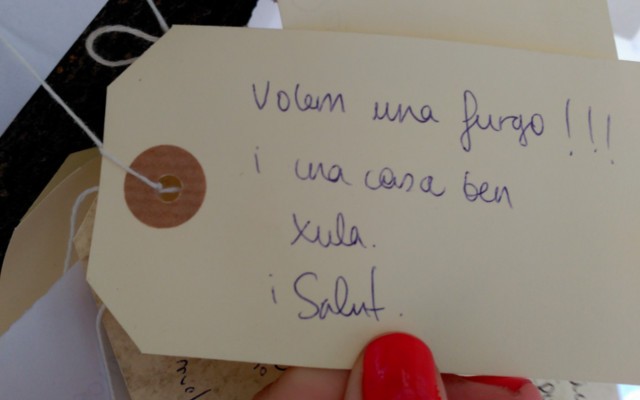 Volem una furgo!!!
i una casa ben
xula.
i Salut.